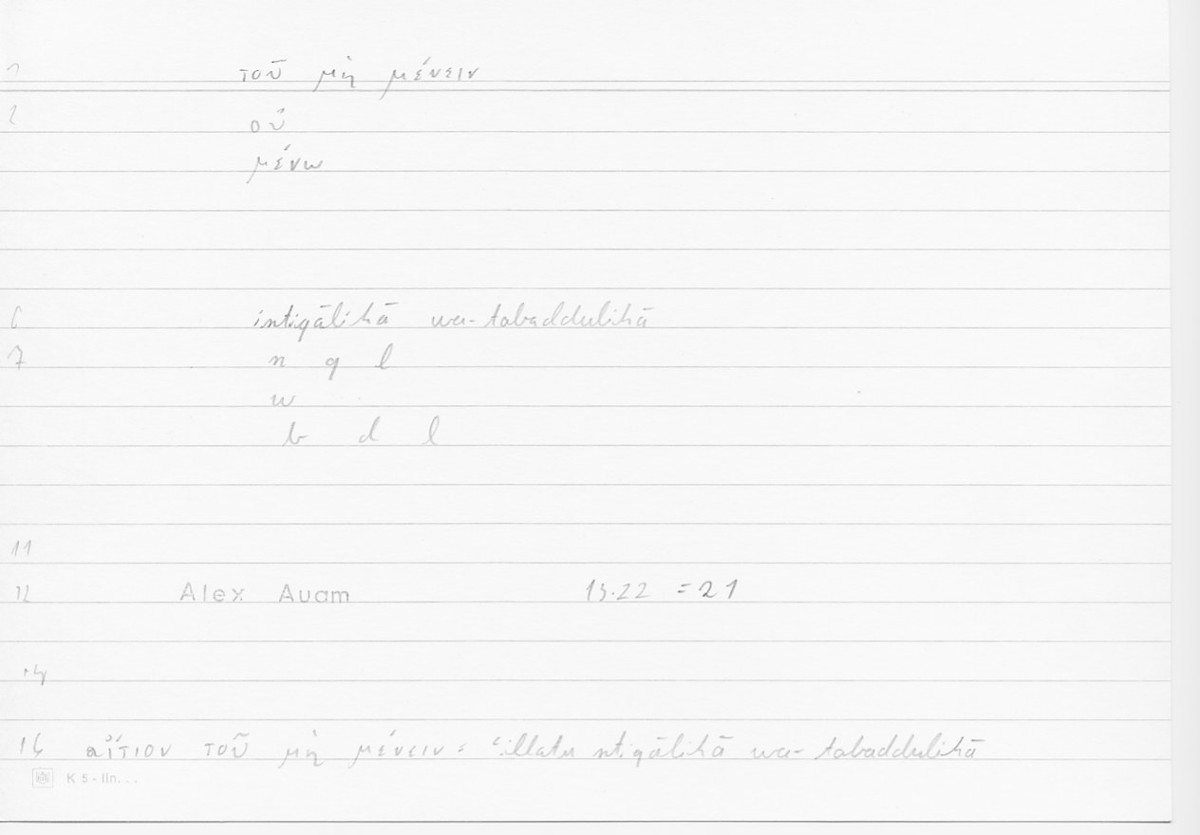 1 τοῦ μὴ μένειν
2 οὗ
μένω
6 intiqālihā wa-tabaddulihā
7 n q l
w
b d l
11
12 Alex Auam 13.22 = 21
14
αἴτιον τοῦ μὴ μένειν = ʿillatu ntiqālihā wa-tabaddulihā
K 5 - lin...